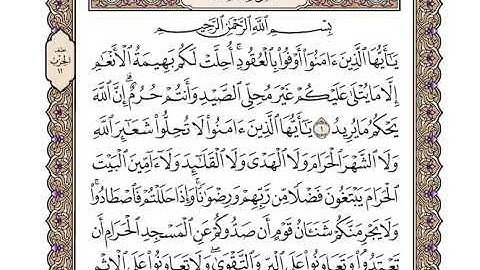 بِسْمِ ٱللَّهِ ٱلرَّحْمَٰنِ ٱلرَّحِيمِ
يَـٰٓأَيُّهَا ٱلَّذِينَ ءَامَنُوٓا۟ أَوْفُوا۟ بِٱلْعُقُودِ ۚ أُحِلَّتْ لَكُم بَهِيمَةُ ٱلْأَنْعَـٰمِ
إِلَّا مَا يُتْلَىٰ عَلَيْكُمْ غَيْرَ مُحِلِّى ٱلصَّيْدِ وَأَنتُمْ حُرُمٌ ۗ إِنَّ ٱللَّهَ
يَحْكُمُ مَا يُرِيدُ ١ يَـٰٓأَيُّهَا ٱلَّذِينَ ءَامَنُوا۟ لَا تُحِلُّوا۟ شَعَـٰٓئِرَ ٱللَّهِ
وَلَا ٱلشَّهْرَ ٱلْحَرَامَ وَلَا ٱلْهَدْىَ وَلَا ٱلْقَلَـٰٓئِدَ وَلَآ ءَآمِّينَ ٱلْبَيْتَ
ٱلْحَرَامَ يَبْتَغُونَ فَضْلًا مِّن رَّبِّهِمْ وَرِضْوَٰنًا ۚ وَإِذَا حَلَلْتُمْ فَٱصْطَادُوا۟ ۚ
وَلَا يَجْرِمَنَّكُمْ شَنَـَٔانُ قَوْمٍ أَن صَدُّوكُمْ عَنِ ٱلْمَسْجِدِ ٱلْحَرَامِ أَن
تَعْتَدُوا۟ ۘ وَتَعَاوَنُوا۟ عَلَى ٱلْبِرِّ وَٱلتَّقْوَىٰ ۖ وَلَا تَعَاوَنُوا۟ عَلَى ٱلْإِثْمِ
الحزب
١١